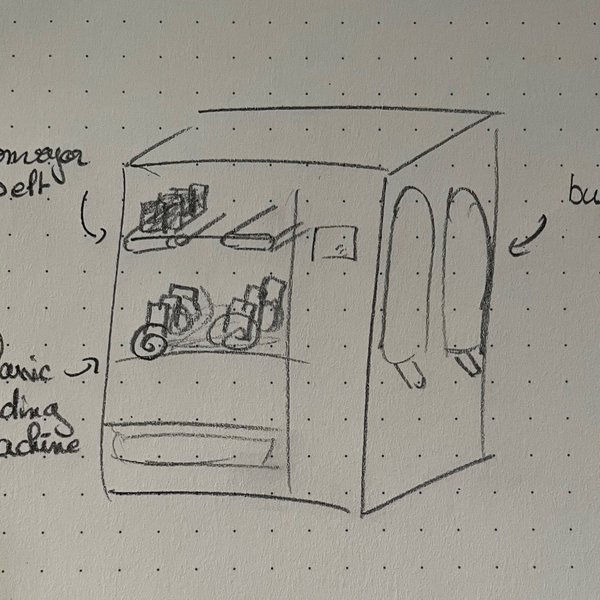 onveyor
belt
bu
anic
ding
achine